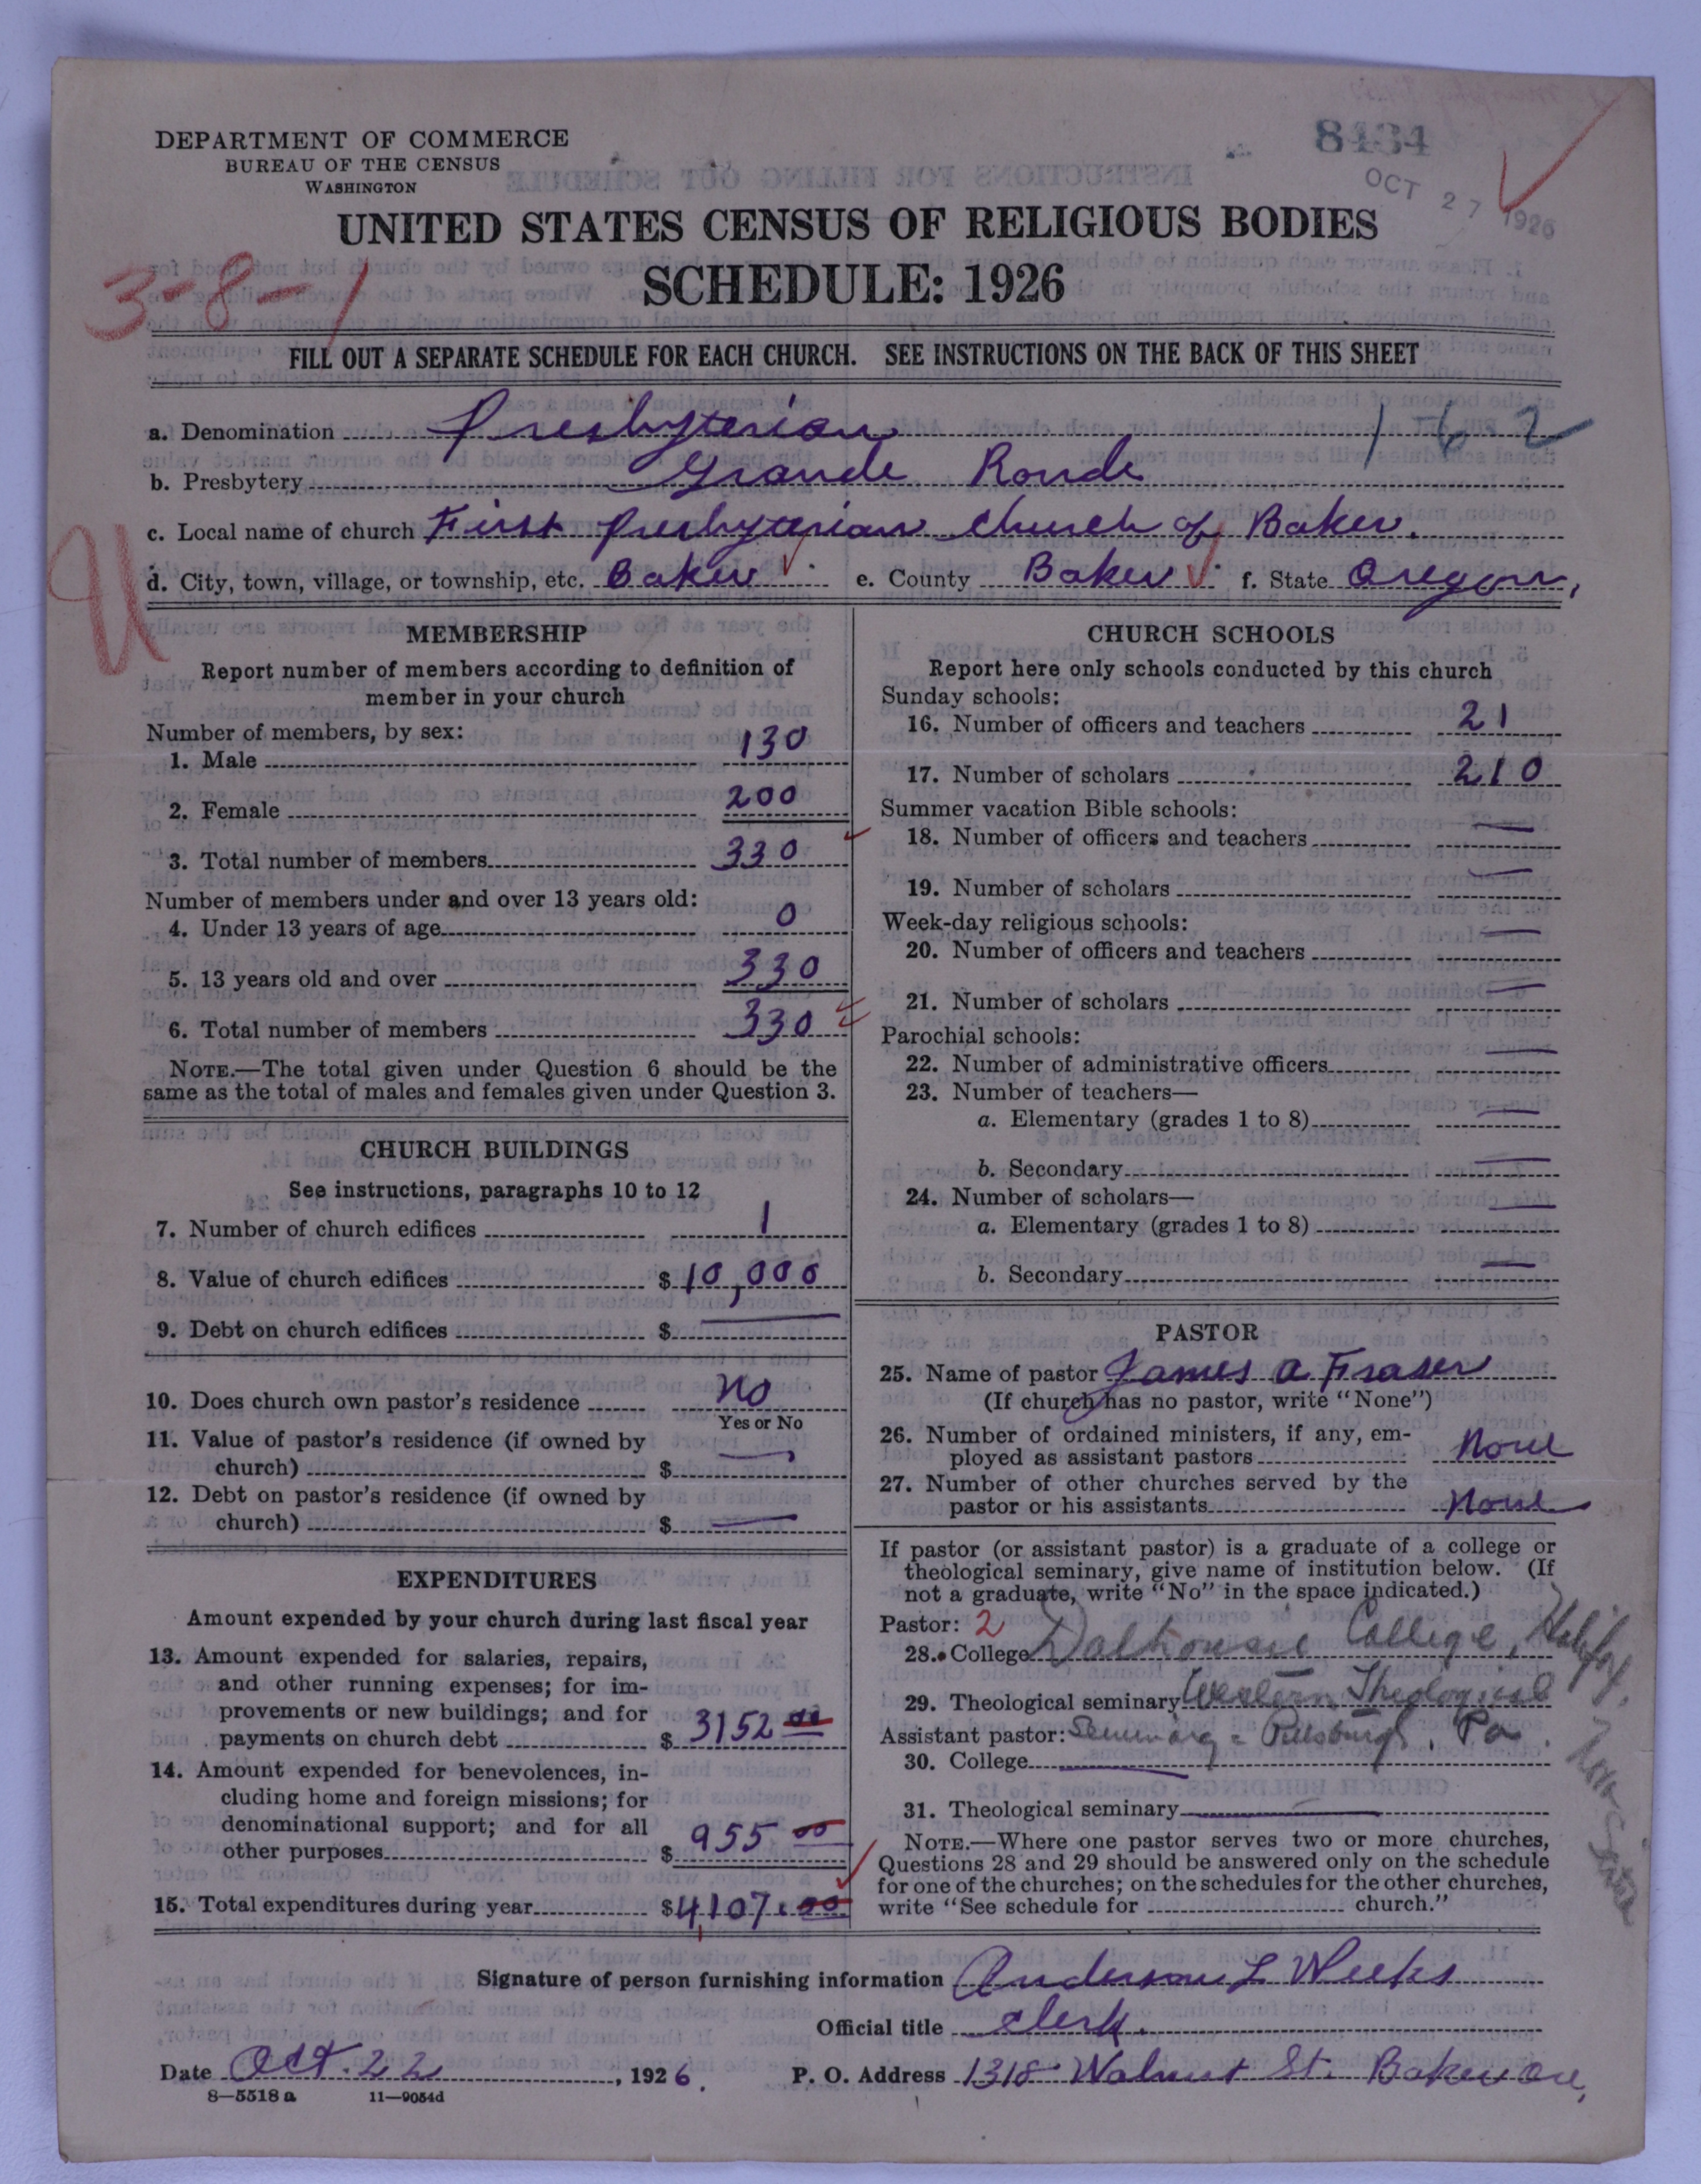 8434
OCT 27 1926
DEPARTMENT OF COMMERCE
BUREAU OF THE CENSUS
WASHINGTON
UNITED STATES CENSUS OF RELIGIOUS BODIES
SCHEDULE: 1926
3-8-1
FILL OUT A SEPARATE SCHEDULE FOR EACH CHURCH. SEE INSTRUCTIONS ON THE BACK OF THIS SHEET
a. Denomination Presbyterian 162
b. Presbytery Grande Ronde
c. Local name of church First Presbyterian Church of Baker.
d. City, town, village, or township, etc. Baker e. County Baker f. State Oregon,
U
MEMBERSHIP
Report number of members according to definition of
member in your church
Number of members, by sex:
1. Male 130
2. Female 200
3. Total number of members 330
Number of members under and over 13 years old:
4. Under 13 years of age 0
5. 13 years old and over 330
6. Total number of members 330
NOTE.—The total given under Question 6 should be the
same as the total of males and females given under Question 3.
CHURCH BUILDINGS
See instructions, paragraphs 10 to 12
7. Number of church edifices 1
8. Value of church edifices $ 10,000
9. Debt on church edifices $ —
10. Does church own pastor's residence No
Yes or No
11. Value of pastor's residence (if owned by
church) $ —
12. Debt on pastor's residence (if owned by
church) $ —
EXPENDITURES
Amount expended by your church during last fiscal year
13. Amount expended for salaries, repairs,
and other running expenses; for im-
provements or new buildings; and for
payments on church debt $ 3152 00
14. Amount expended for benevolences, in-
cluding home and foreign missions; for
denominational support; and for all
other purposes $ 955 00
15. Total expenditures during year $ 4107.00
CHURCH SCHOOLS
Report here only schools conducted by this church
Sunday schools:
16. Number of officers and teachers 21
17. Number of scholars 210
Summer vacation Bible schools:
18. Number of officers and teachers —
19. Number of scholars —
Week-day religious schools:
20. Number of officers and teachers —
21. Number of scholars —
Parochial schools:
22. Number of administrative officers —
23. Number of teachers—
a. Elementary (grades 1 to 8) —
b. Secondary —
24. Number of scholars—
a. Elementary (grades 1 to 8) —
b. Secondary —
PASTOR
25. Name of pastor James A Fraser
(If church has no pastor, write "None")
26. Number of ordained ministers, if any, em-
ployed as assistant pastors None
27. Number of other churches served by the
pastor or his assistants None
If pastor (or assistant pastor) is a graduate of a college or
theological seminary, give name of institution below. (If
not a graduate, write "No" in the space indicated.)
Pastor: 2
28. College Dalhousie College, Halifax, Nova Scotia
29. Theological seminary Western Theological
Assistant pastor: Seminary - Pittsburgh, Pa.
30. College —
31. Theological seminary —
NOTE.—Where one pastor serves two or more churches,
Questions 28 and 29 should be answered only on the schedule
for one of the churches; on the schedules for the other churches,
write "See schedule for church."
Signature of person furnishing information Anderson L Weeks
Official title Clerk.
Date Oct. 22, 1926. P. O. Address 1318 Walnut St. Baker Ore,
8—5518 a 11—9054d